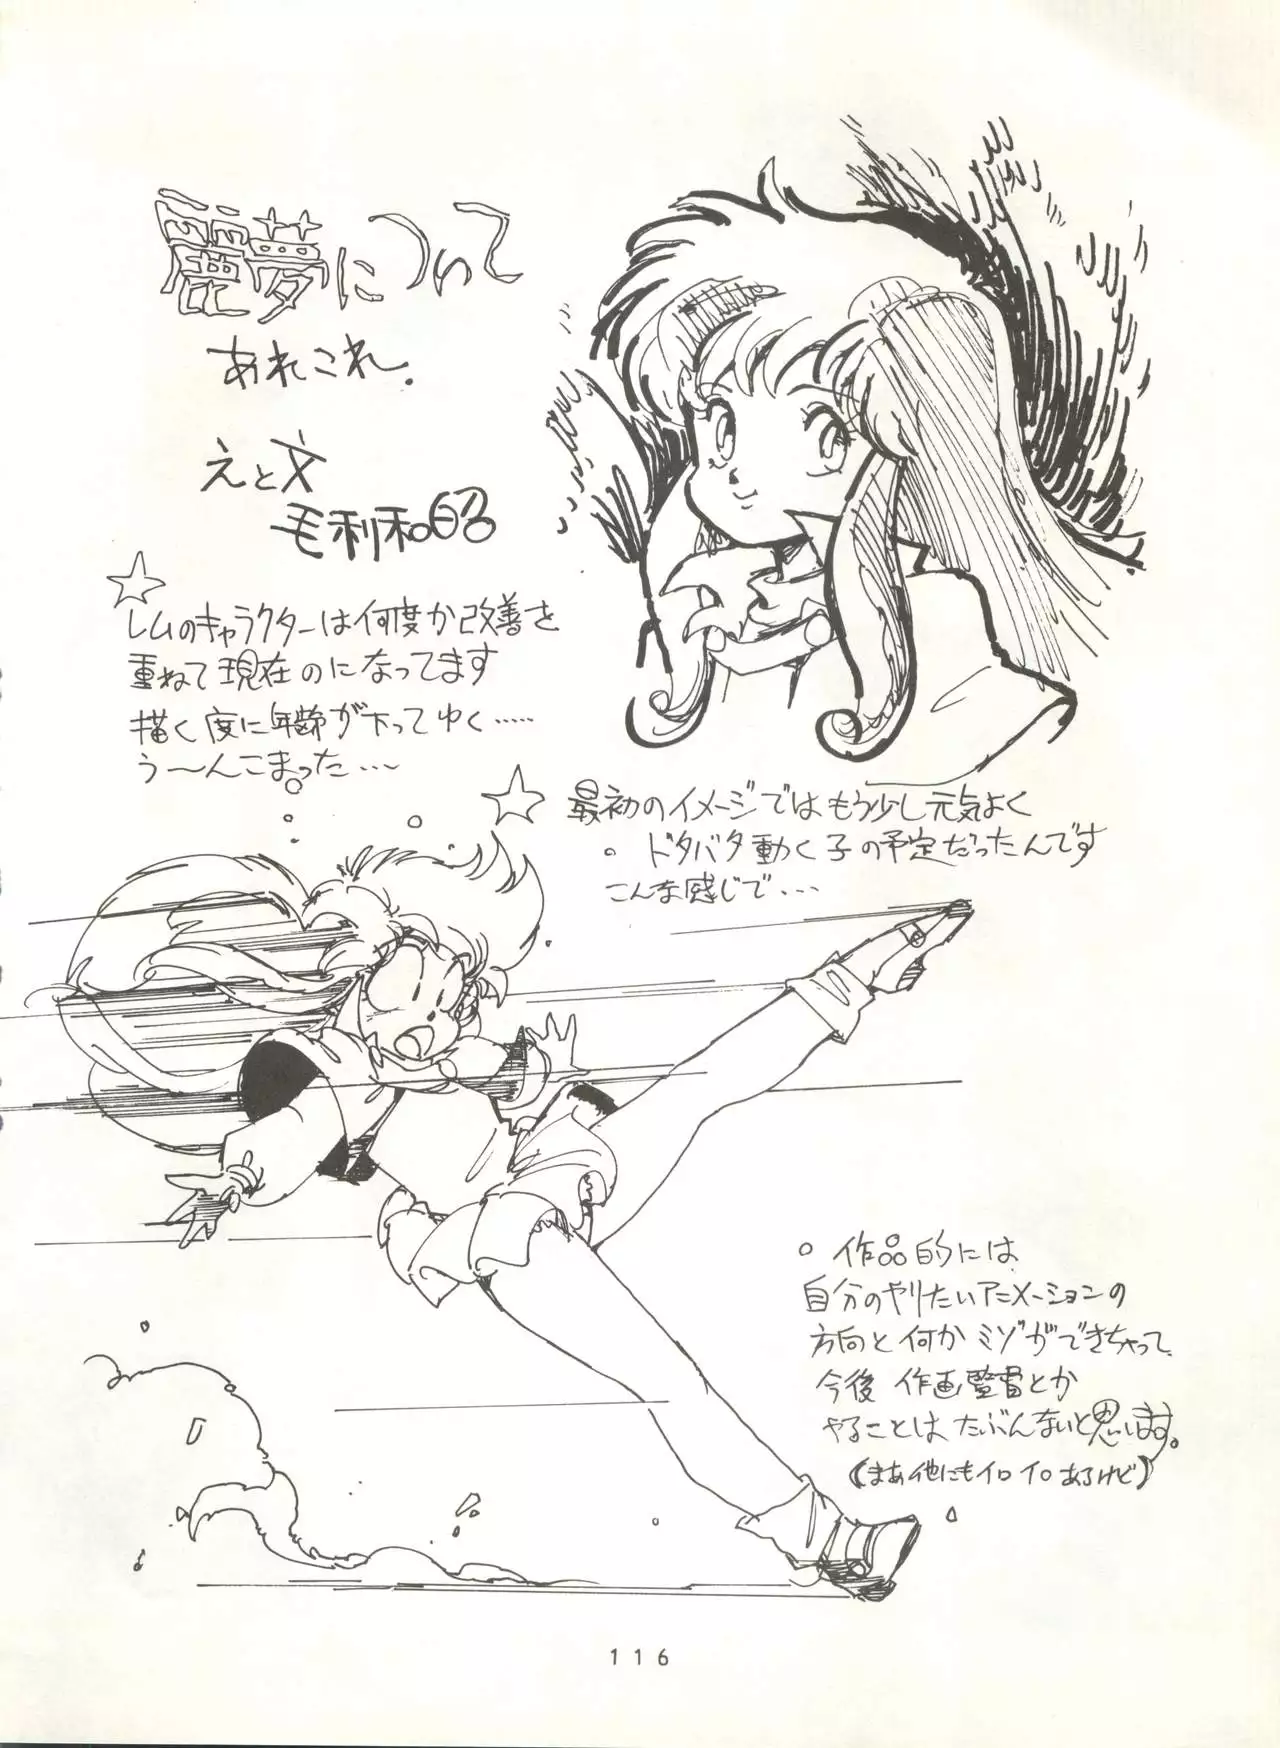 麗夢について
あれこれ.
えと文
毛利和昭
☆
レムのキャラクターは何度か改善を
重ねて現在のになってます
描く度に年齢が下ってゆく……
う〜んこまった…
☆
最初のイメージではもう少し元気よく
ドタバタ動く子の予定だったんです
こんな感じで…
○作品的には
自分のやりたいアニメーションの
方向と何かミゾができちゃって
今後 作画監督とか
やることは、たぶんないと思います。
(まあ他にもイロイロあるけど)
116